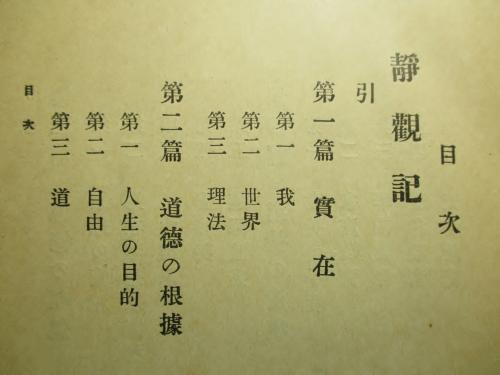 目次
靜觀記
引
第一篇 實在
第一 我
第二 世界
第三 理法
第二篇 道德の根據
第一 人生の目的
第二 自由
第三 道
目次